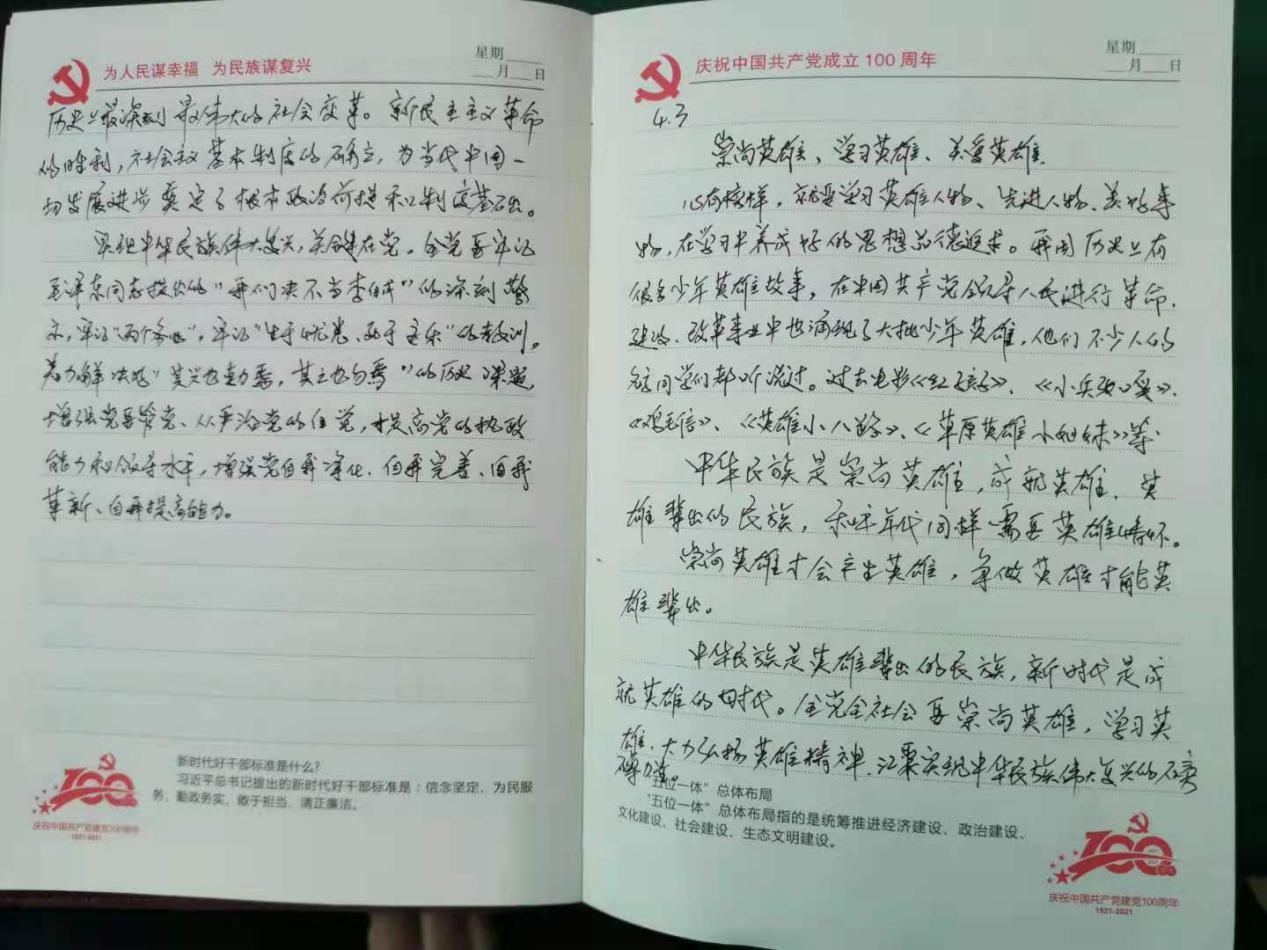 为人民谋幸福 为民族谋复兴
星期
月 日
历史上最深刻最伟大的社会变革。新民主主义革命
的胜利，社会主义基本制度的确立，为当代中国一
切发展进步奠定了根本政治前提和制度基础。
实现中华民族伟大复兴，关键在党。全党要牢记
毛泽东同志提出的“我们决不当李自成”的深刻警
示，牢记“两个务必”，牢记“生于忧患、死于安乐”的教训。
着力解决好“其兴也勃焉，其亡也忽焉”的历史课题，
增强党要管党、从严治党的自觉，提高党的执政
能力和领导水平，增强党自我净化、自我完善、自我
革新、自我提高能力。
新时代好干部标准是什么？
习近平总书记提出的新时代好干部标准是：信念坚定、为民服
务、勤政务实、敢于担当、清正廉洁。
100
庆祝中国共产党建党100周年
1921-2021
庆祝中国共产党成立100周年
星期
月 日
4.3
崇尚英雄、学习英雄、关爱英雄.
心有榜样，就要学习英雄人物、先进人物、美好事
物，在学习中养成好的思想品德追求。我国历史上有
很多少年英雄故事，在中国共产党领导人民进行革命、
建设、改革事业中也涌现了大批少年英雄，他们不少人的
名同学们都听说过。过去电影《红孩子》、《小兵张嘎》、
《鸡毛信》、《英雄小八路》、《草原英雄小姐妹》等.
中华民族是崇尚英雄，成就英雄、英
雄辈出的民族，和平年代同样需要英雄情怀。
崇尚英雄才会产生英雄，争做英雄才能英
雄辈出。
中华民族是英雄辈出的民族，新时代是成
就英雄的时代。全党全社会要崇尚英雄，学习英
雄，大力弘扬英雄精神，汇聚实现中华民族伟大复兴的磅
礴力量。
“五位一体”总体布局
“五位一体”总体布局指的是统筹推进经济建设、政治建设、
文化建设、社会建设、生态文明建设。
100
庆祝中国共产党建党100周年
1921-2021